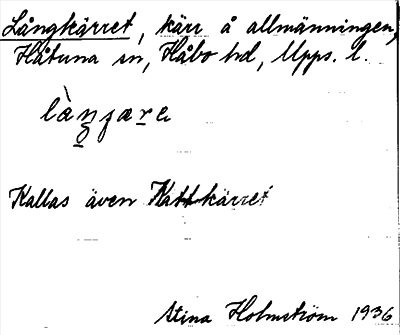 Långkärret, kärr å allmänningen,
Håtuna sn, Håbo hd, Upps. l.
Kallas även Kattkärret
Stina Holmström 1936